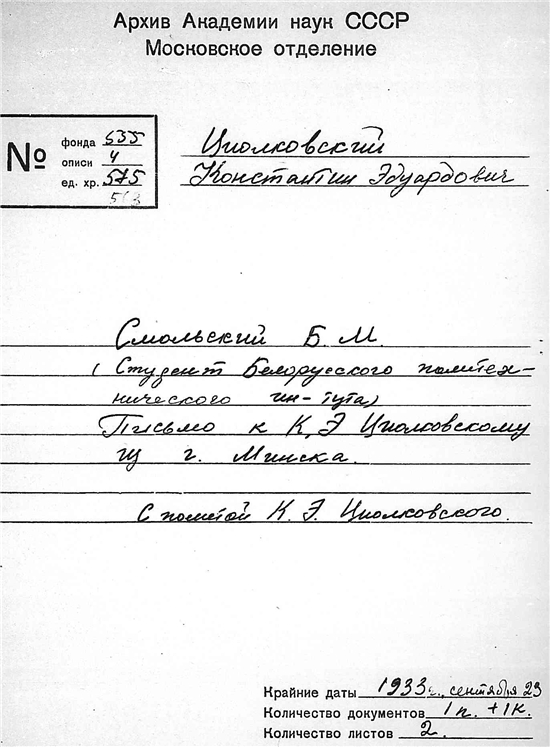 Архив Академии наук СССР
Московское отделение
№
фонда 535
описи 4
ед. хр. 575
Циолковский
Константин Эдуардович
Смольский Б. М.
(Студент Белорусского политех-
нического ин-тута)
Письмо к К. Э Циолковскому
из г. Минска.
С пометой К. Э. Циолковского.
Крайние даты 1933 г. сентября 23
Количество документов 1 п. + 1 к.
Количество листов 2.